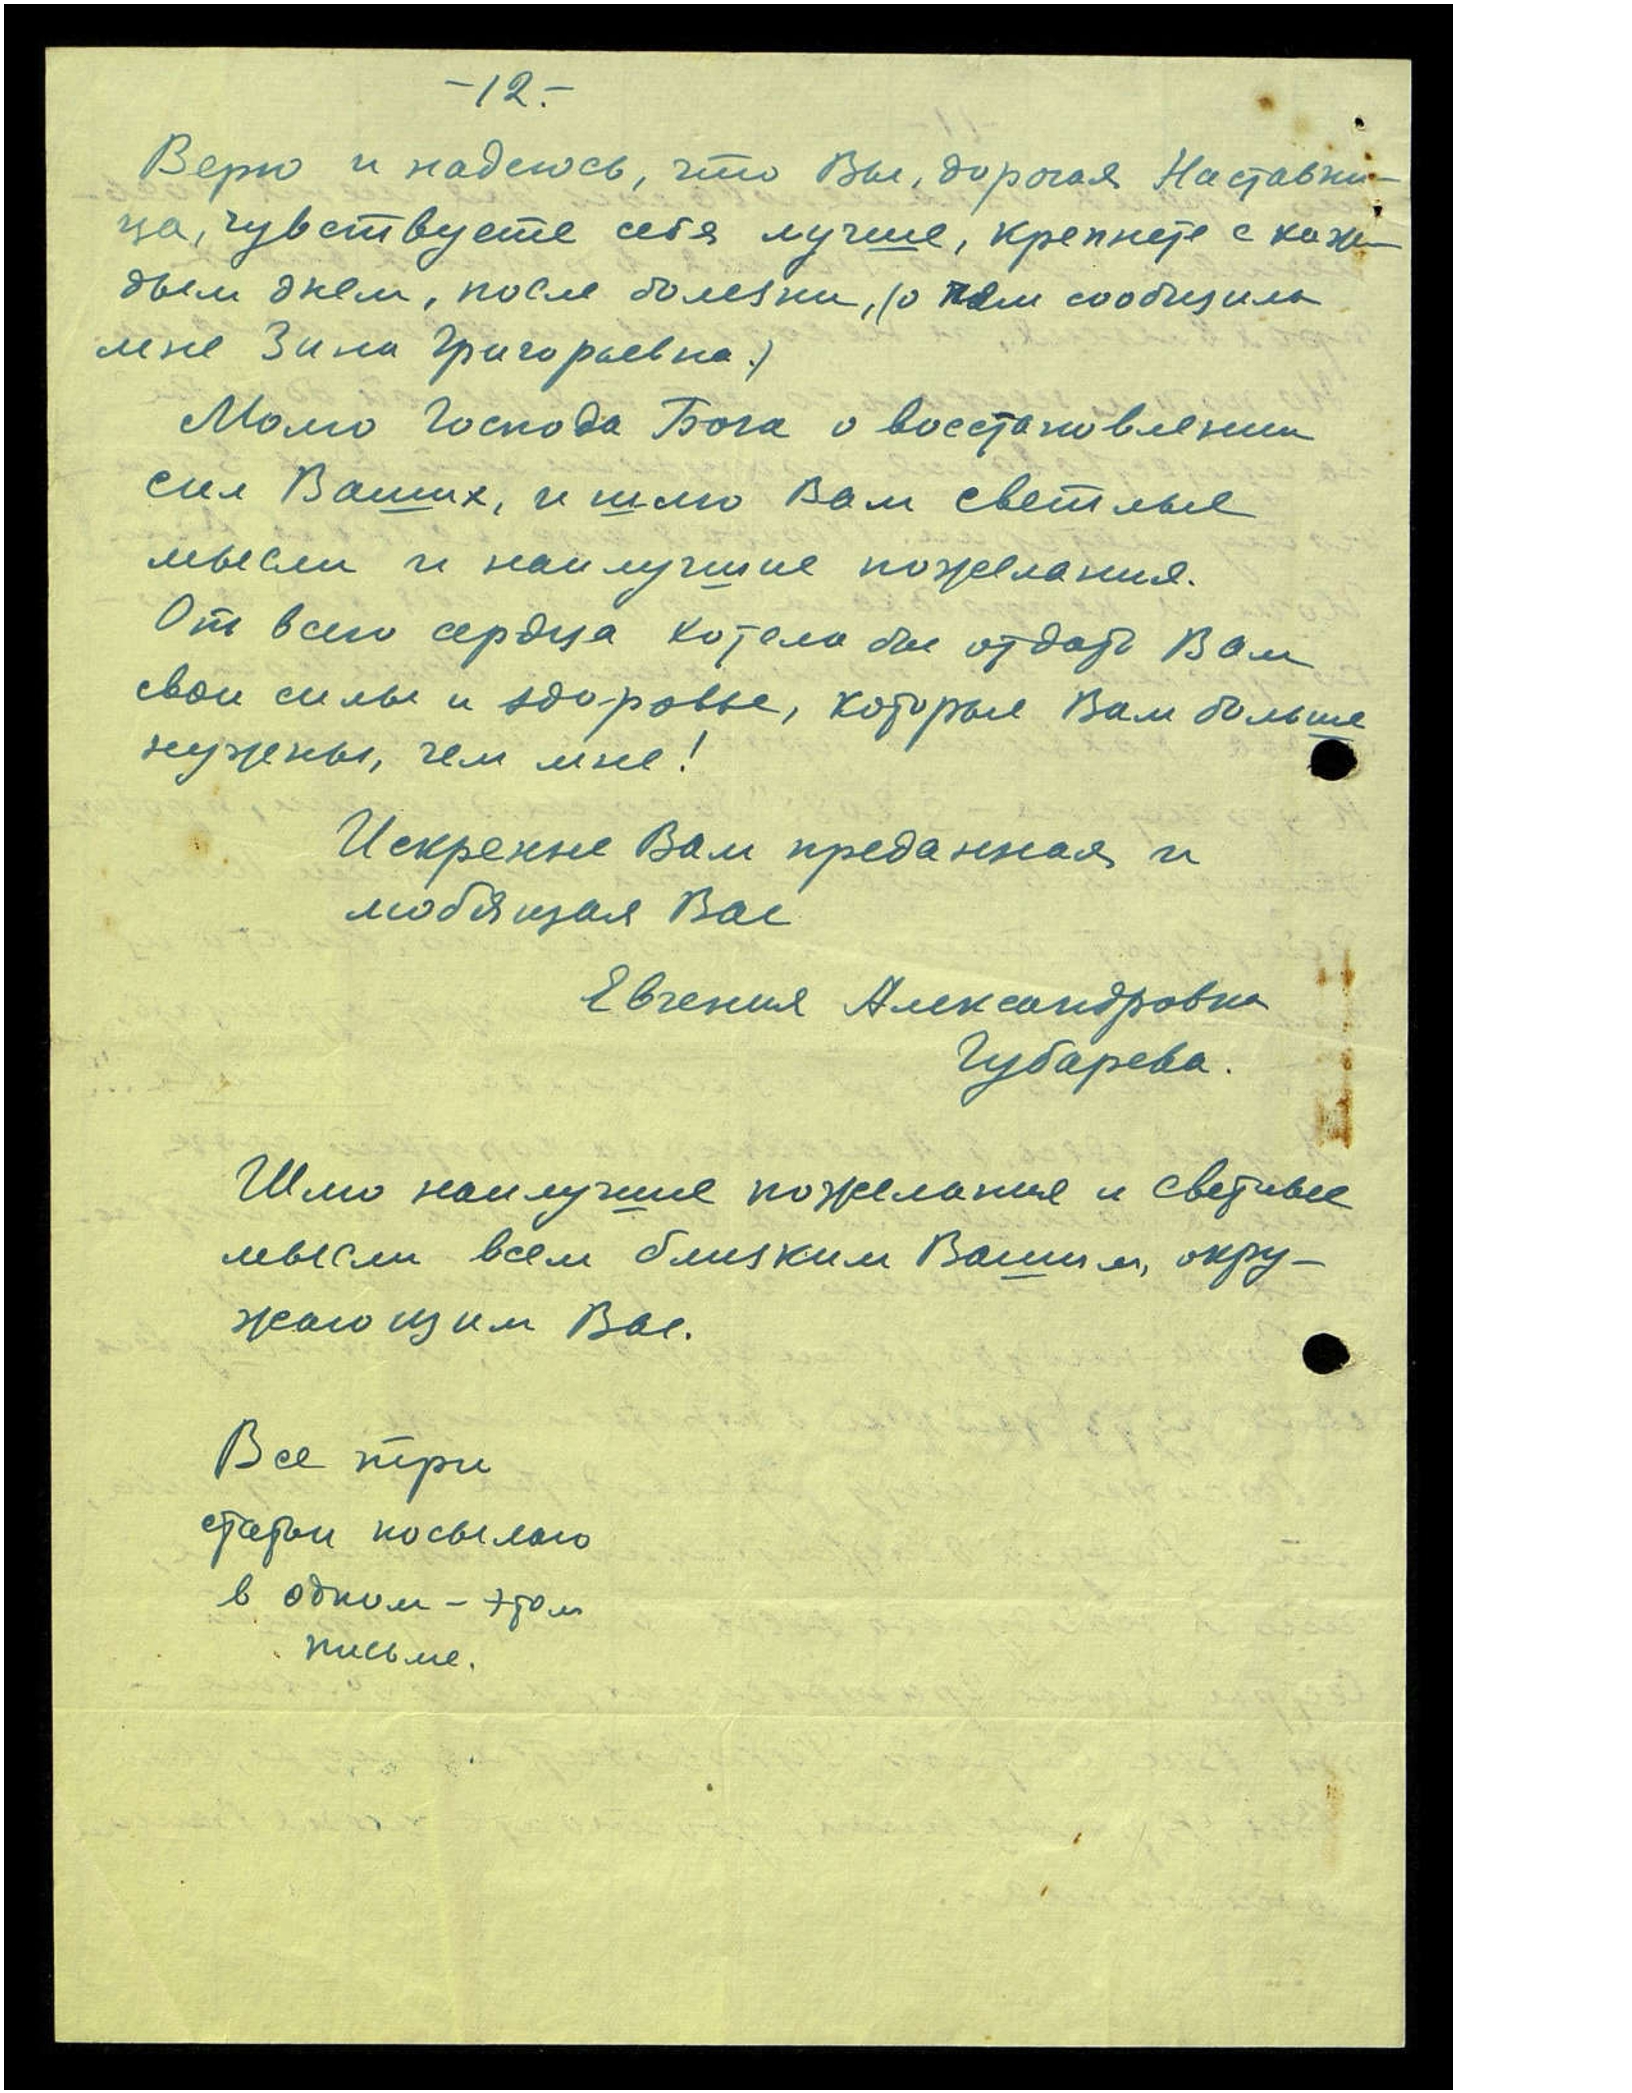 -12.-
Верю и надеюсь, что Вы, дорогая Наставни-
ца, чувствуете себя лучше, крепнете с каж-
дым днем, после болезни, (о чем сообщила
мне Зина Григорьевна.)
Молю Господа Бога о восстановлении
сил Ваших, и шлю Вам светлые
мысли и наилучшие пожелания.
От всего сердца хотела бы отдать Вам
свои силы и здоровье, которые Вам больше
нужны, чем мне!
Искренне Вам преданная и
любящая Вас
Евгения Александровна
Губарева.
Шлю наилучшие пожелания и светлые
мысли всем близким Вашим, окру-
жающим Вас.
Все три
статьи посылаю
в одном - этом
письме.